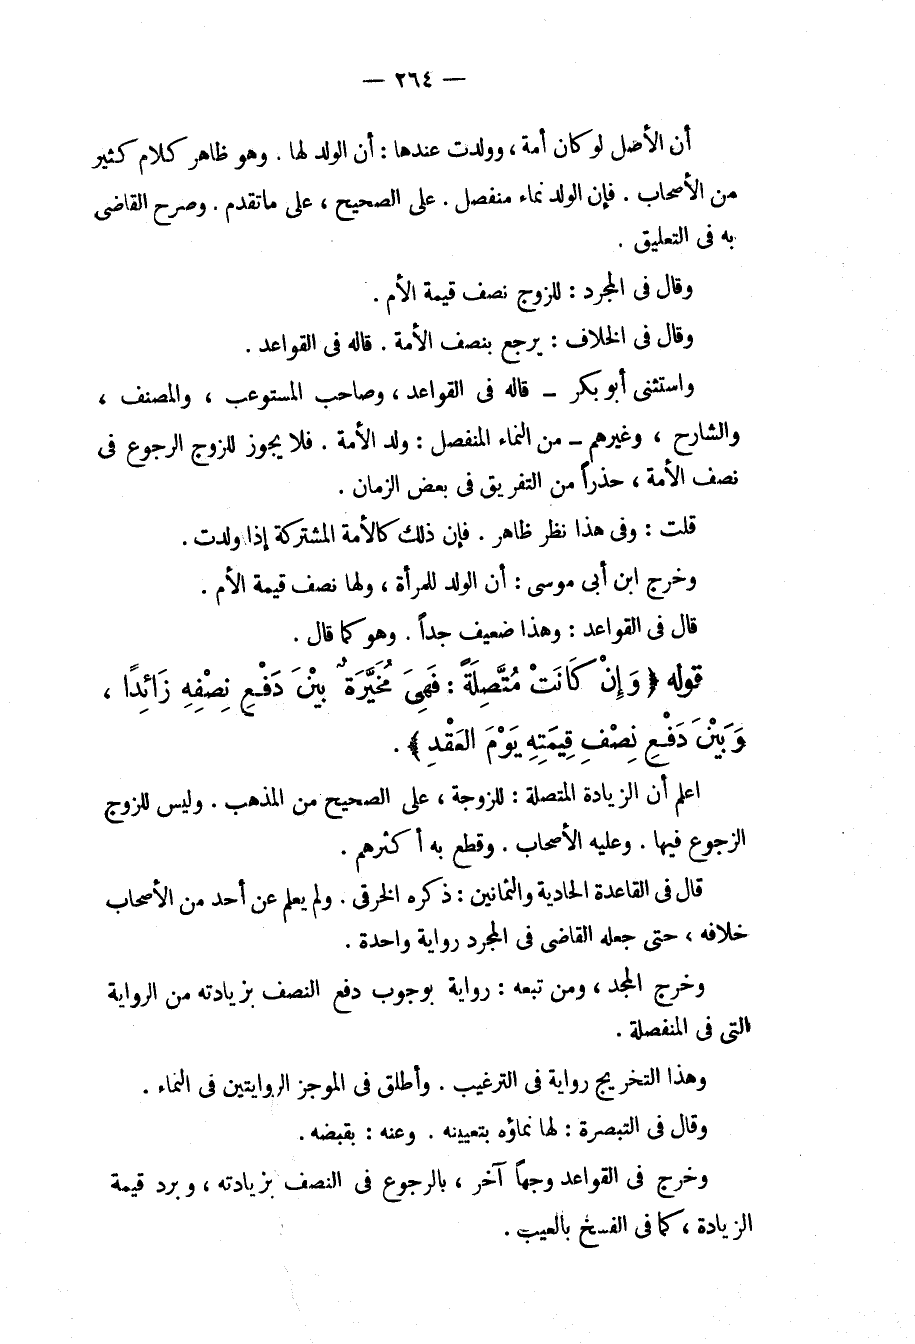 — ٢٦٤ —
أن الأصل لو كان أمة ، وولدت عندها : أن الولد لها . وهو ظاهر كلام كثير
من الأصحاب . فإن الولد نماء منفصل . على الصحيح ، على ماتقدم . وصرح القاضى
به فى التعليق .
وقال فى المجرد : للزوج نصف قيمة الأم .
وقال فى الخلاف : يرجع بنصف الأمة . قاله فى القواعد .
واستثنى أبو بكر – قاله فى القواعد ، وصاحب المستوعب ، والمصنف ،
والشارح ، وغيرهم – من النماء المنفصل : ولد الأمة . فلا يجوز للزوج الرجوع فى
نصف الأمة ، حذراً من التفريق فى بعض الزمان .
قلت : وفى هذا نظر ظاهر . فإن ذلك كالأمة المشتركة إذا ولدت .
وخرج ابن أبى موسى : أن الولد للمرأة ، ولها نصف قيمة الأم .
قال فى القواعد : وهذا ضعيف جداً . وهو كما قال .
قوله ﴿ وَإِنْ كَانَتْ مُتَّصِلَةً : فَهِىَ مُخَيَّرَةٌ بَيْنَ دَفْعِ نِصْفِهِ زَائِدًا ،
وَبَيْنَ دَفْعِ نِصْفِ قِيمَتِهِ يَوْمَ العَقْدِ ﴾ .
اعلم أن الزيادة المتصلة : للزوجة ، على الصحيح من المذهب . وليس للزوج
الرجوع فيها . وعليه الأصحاب . وقطع به أكثرهم .
قال فى القاعدة الحادية والثمانين : ذكره الخرقى . ولم يعلم عن أحد من الأصحاب
خلافه ، حتى جعله القاضى فى المجرد رواية واحدة .
وخرج المجد ، ومن تبعه : رواية بوجوب دفع النصف بزيادته من الرواية
التى فى المنفصلة .
وهذا التخريج رواية فى الترغيب . وأطلق فى الموجز الروايتين فى النماء .
وقال فى التبصرة : لها نماؤه بتعيينه . وعنه : بقبضه .
وخرج فى القواعد وجهاً آخر ، بالرجوع فى النصف بزيادته ، وبرد قيمة
الزيادة ، كما فى الفسخ بالعيب .